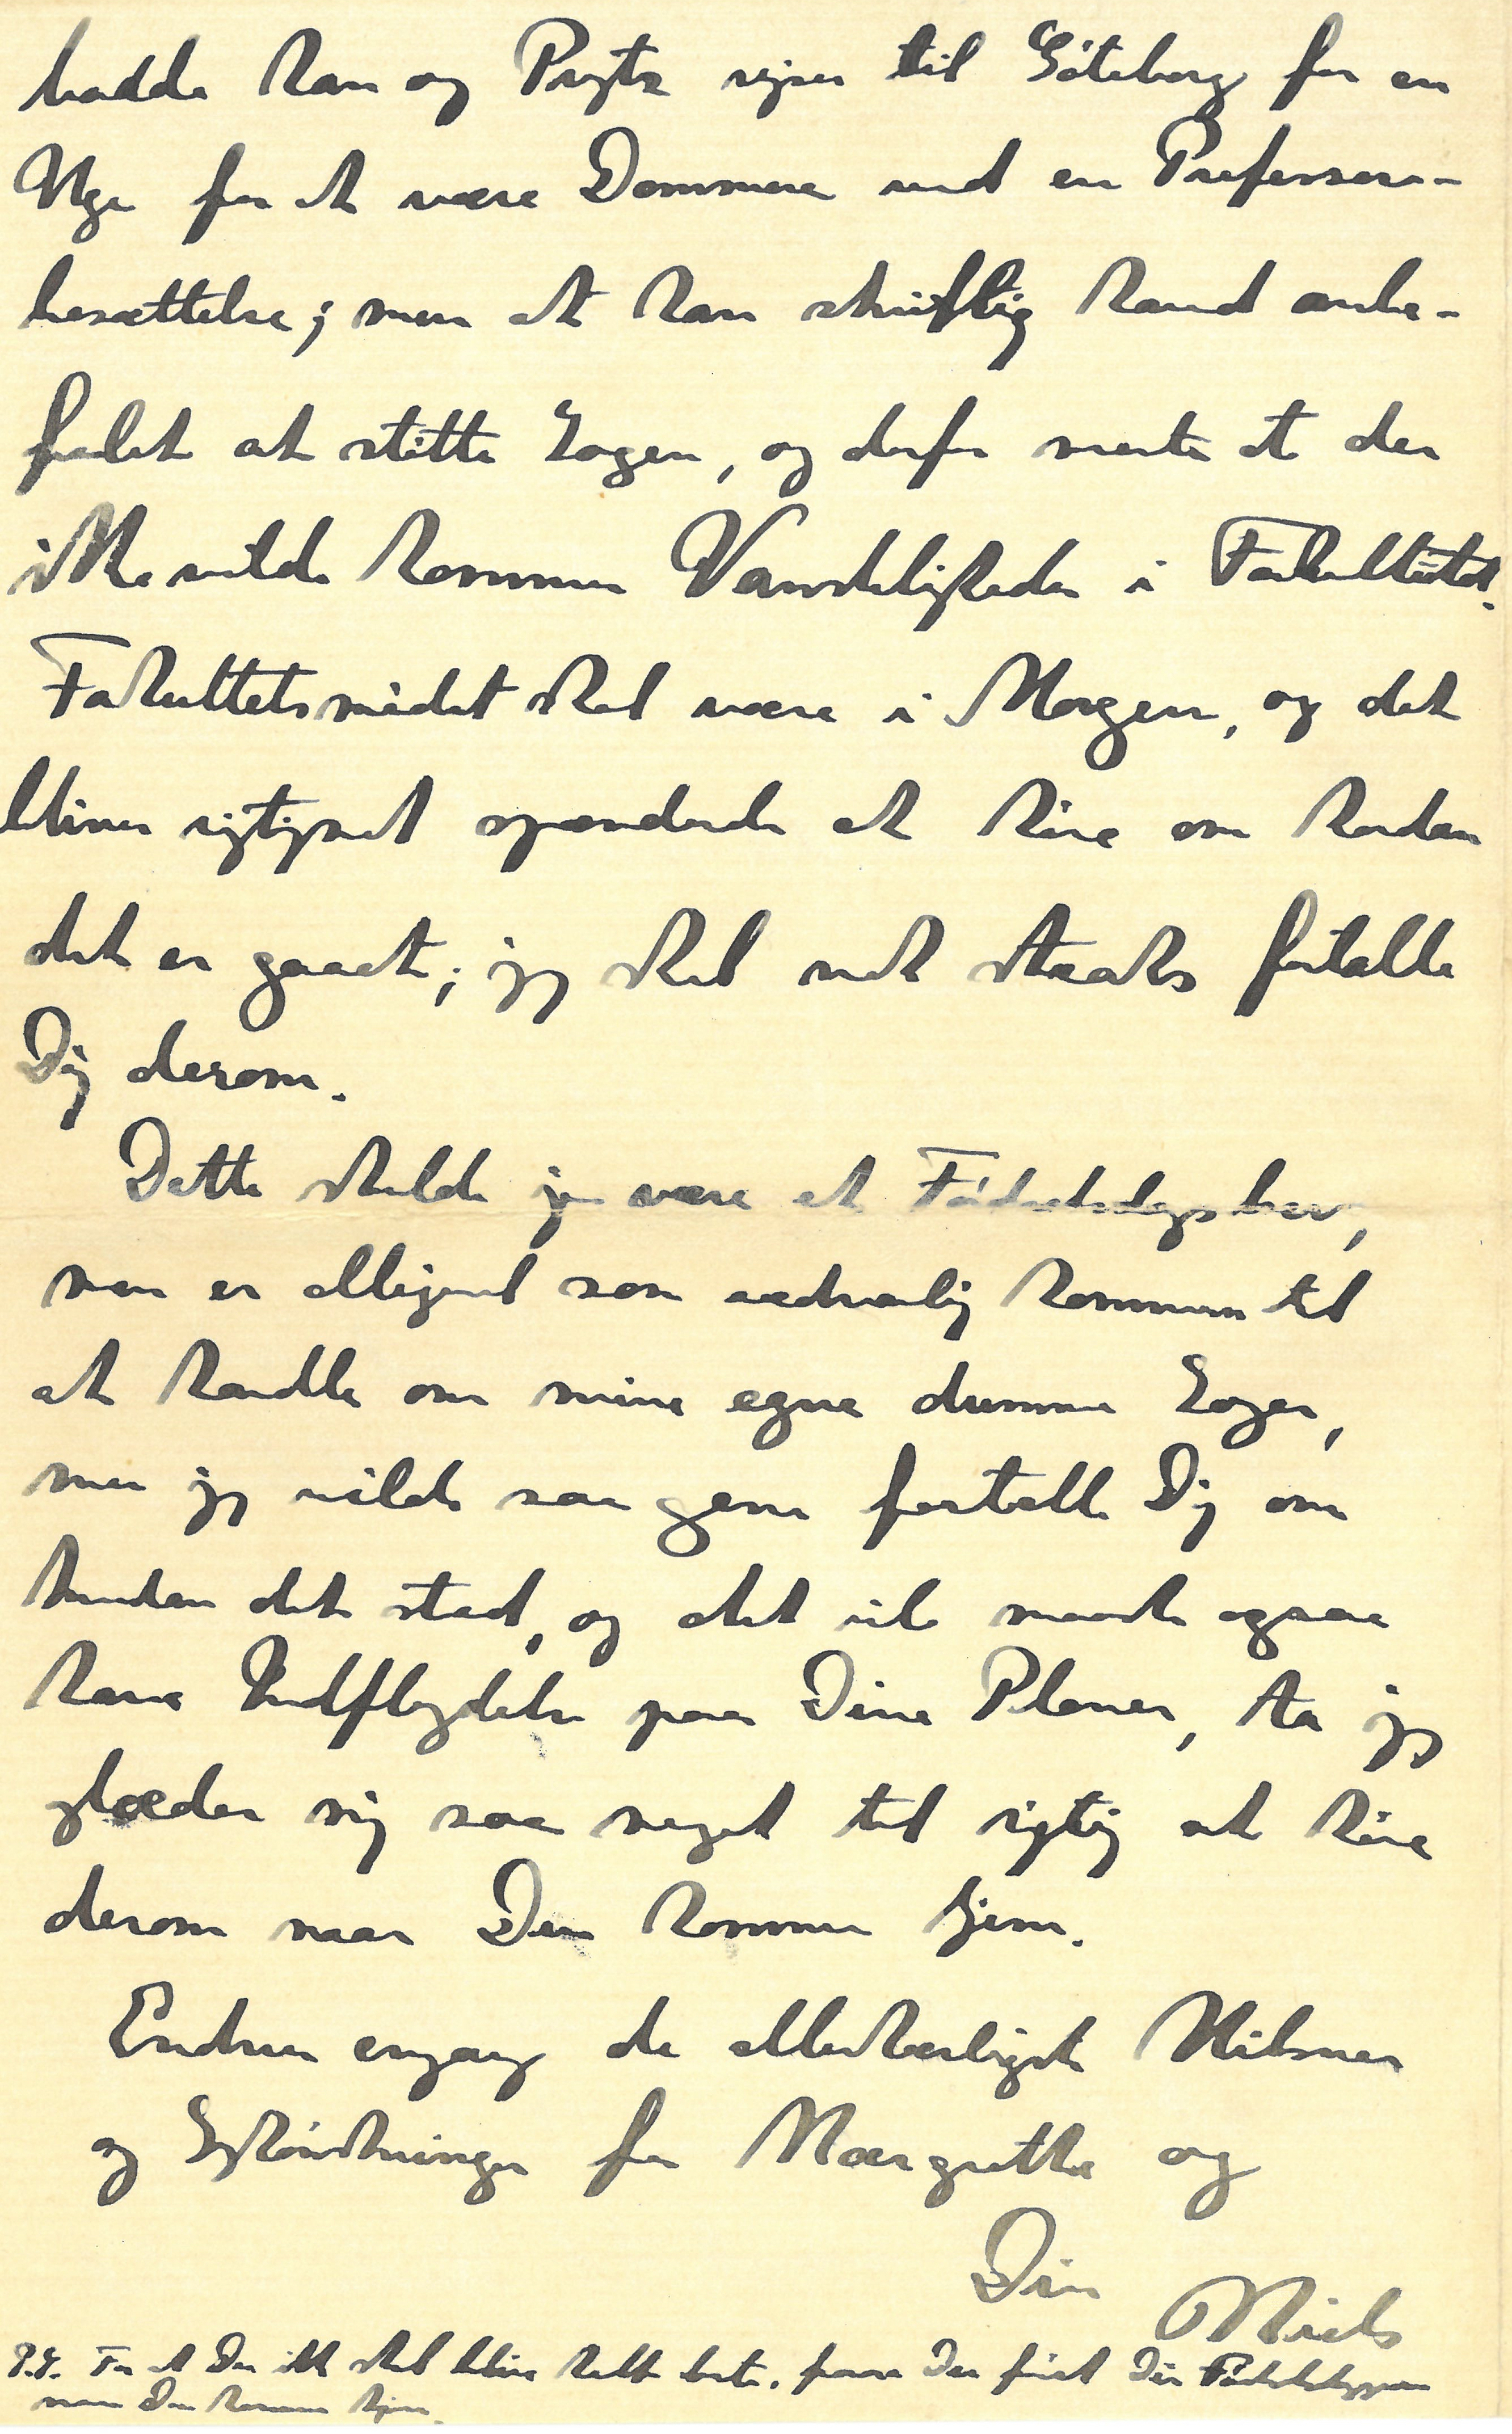 havde han og Prytz rejser til Göteborg for en
Uge for at være Dommere ved en Professor-
besættelse; men at han skriftlig havd anbe-
falet at støtte Sagen, og derfor mente at der
ikke vilde komme Vanskeligheder i Fakultetet.
Fakultetsmødet skal være i Morgen, og det
bliver rigtignok spændende at høre om hvordan
det er gaaet; jeg skal nok straks fortælle
Dig derom.
Dette skulde jo være et Fødselsdagsbrev,
men er alligevel som sædvanlig kommen til
at handle om mine egne dumme Sager,
men jeg vilde saa gerne fortælle Dig om
hvordan det stod, og det vil maaske ogsaa
have Indflydelse paa Dine Planer, som jeg
glæder mig saa meget til rigtig at høre
derom naar Du kommer hjem.
Endnu engang de allerkærligste Hilsner
og Lykønskninger fra Margrethe og
Din Niels
P.S. For at Du ikke skal blive helt  faar Du først Din Fødselsdagsgave
naar Du kommer hjem.